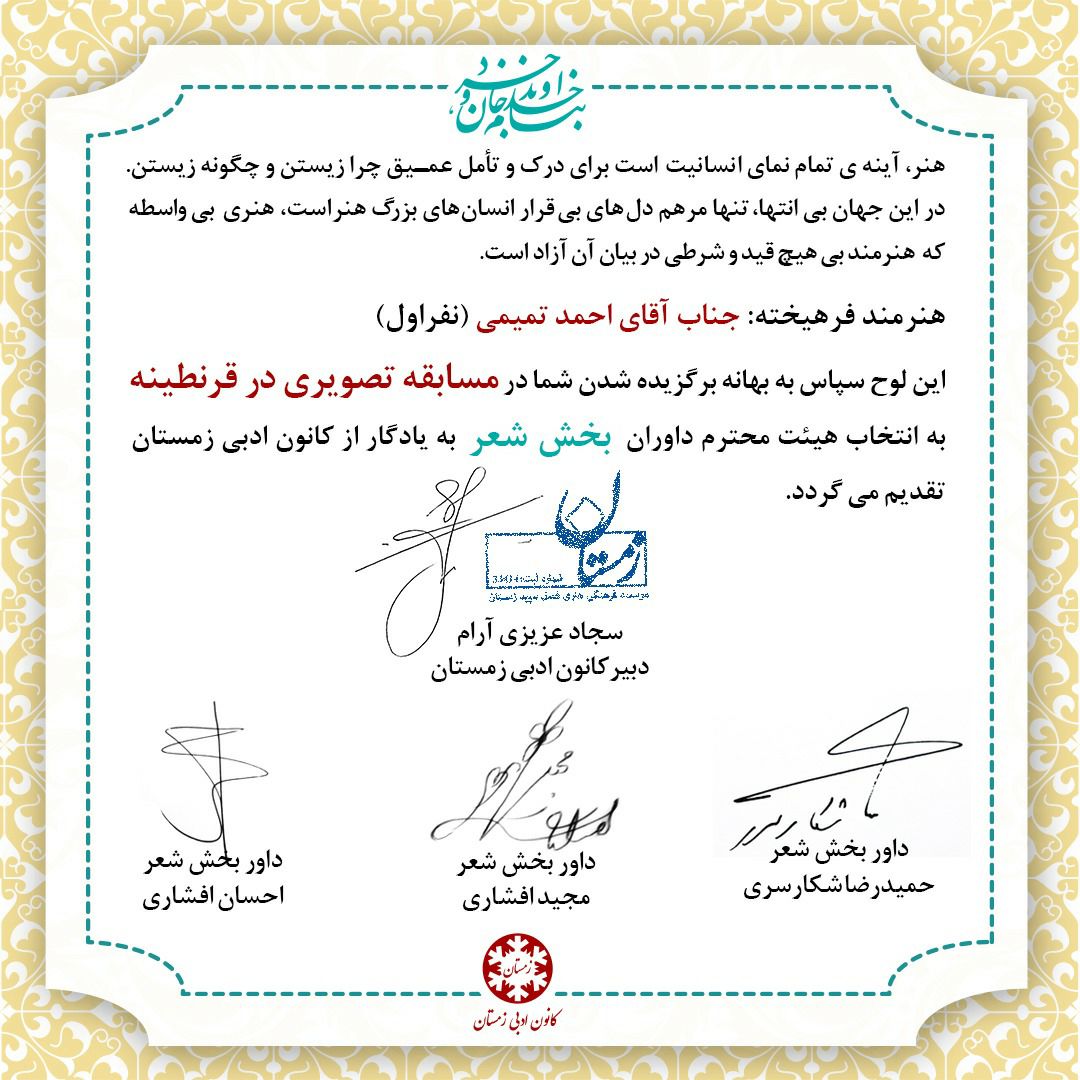 بنام خداوند جان و خرد
هنر، آینه ی تمام نمای انسانیت است برای درک و تأمل عمـیق چرا زیستن و چگونه زیستن.
در این جهان بی انتها، تنها مرهم دل‌های بی قرار انسان‌های بزرگ هنر است، هنری بی واسطه
که هنرمند بی هیچ قید و شرطی در بیان آن آزاد است.
هنرمند فرهیخته: جناب آقای احمد تمیمی (نفر اول)
این لوح سپاس به بهانه برگزیده شدن شما در مسابقه تصویری در قرنطینه
به انتخاب هیئت محترم داوران بخش شعر به یادگار از کانون ادبی زمستان
تقدیم می گردد.
زمستان
شماره ثبت:
موسسه فرهنگی هنری فصل سپید زمستان
سجاد عزیزی آرام
دبیر کانون ادبی زمستان
داور بخش شعر
حمیدرضا شکارسری
داور بخش شعر
مجید افشاری
داور بخش شعر
احسان افشاری
زمستان
کانون ادبی زمستان